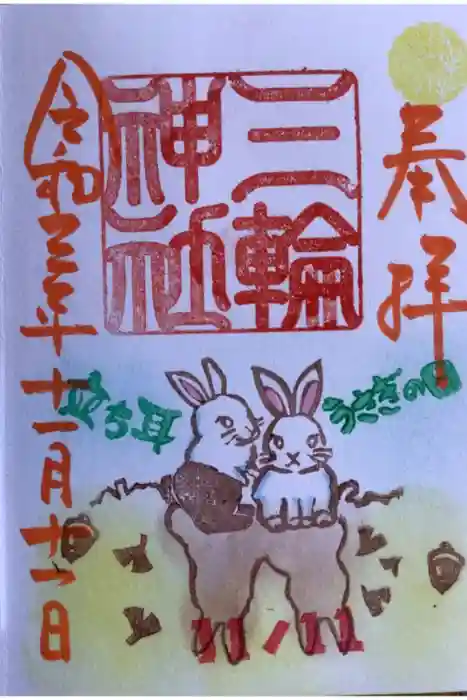 奉拝
三輪
神社
令和三年十一月十一日
うさぎの日
立ち耳
11/11